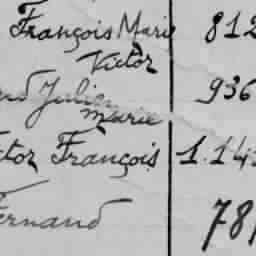 François Marie 812
Victor
Julien 936
Marie
François 1.14
Fernand 78